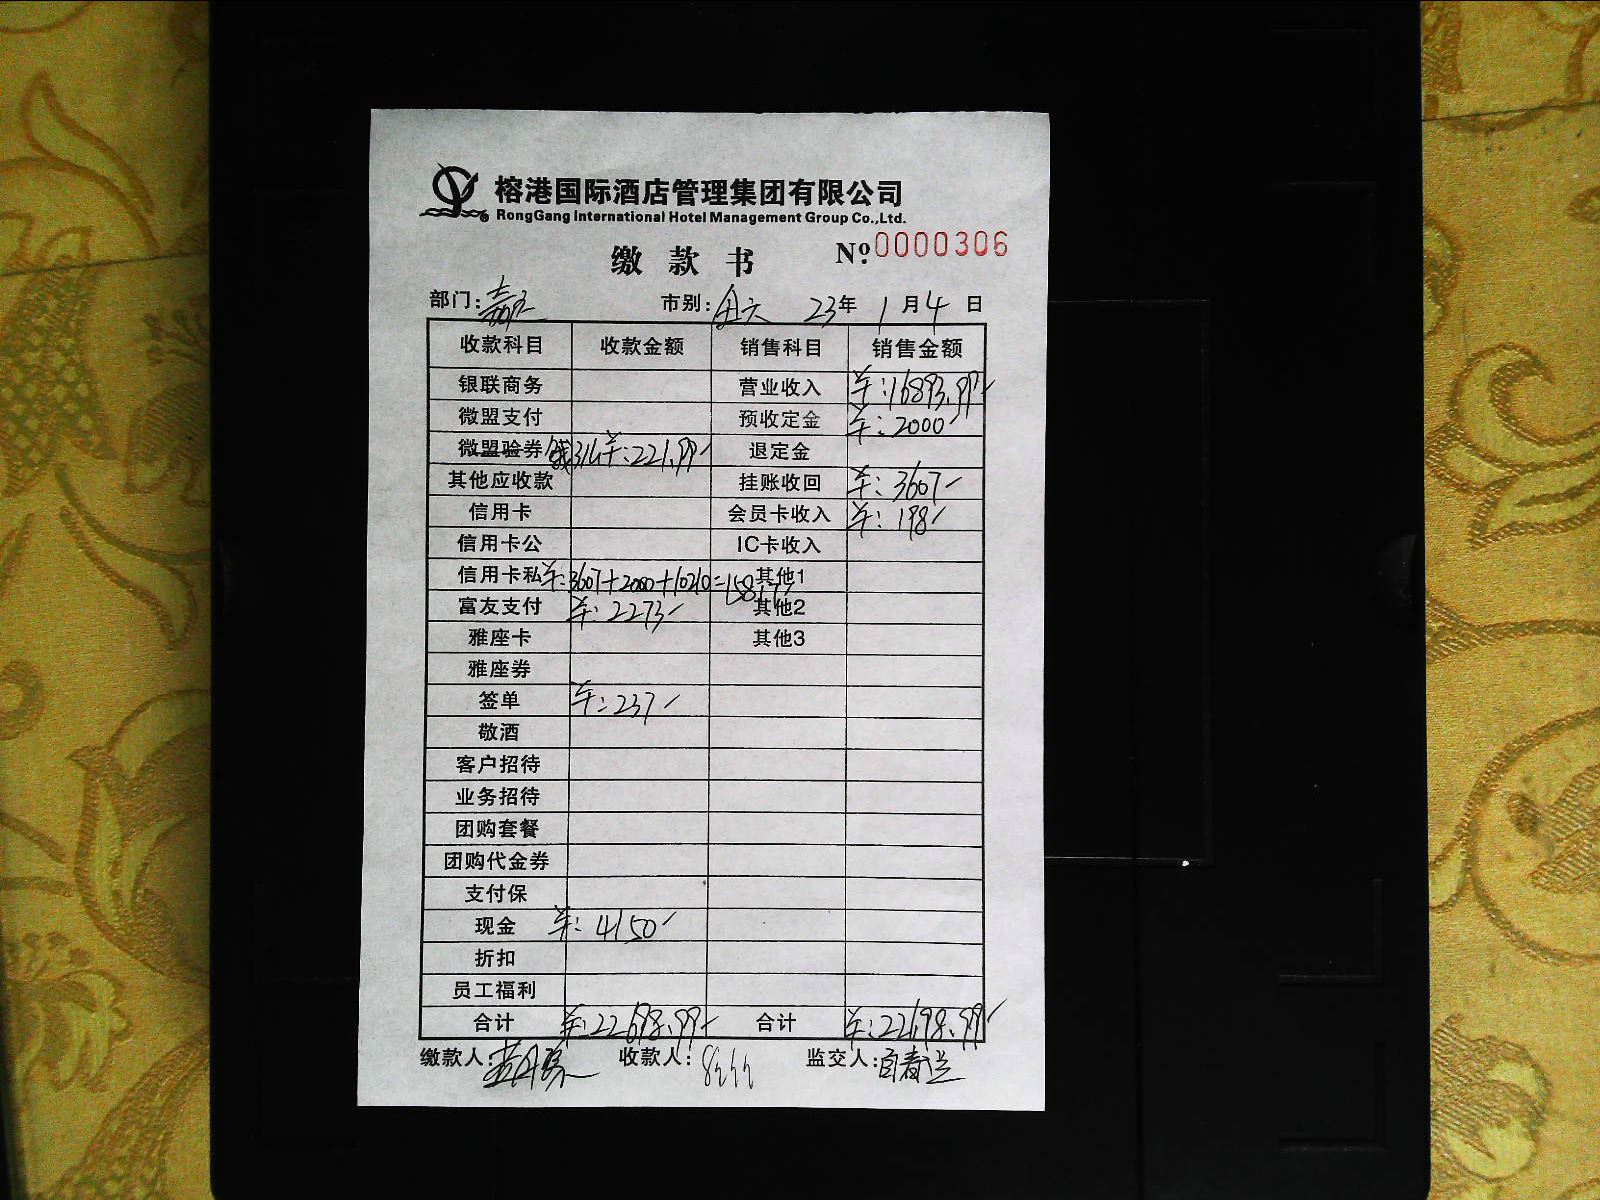 榕港国际酒店管理集团有限公司
RongGang International Hotel Management Group Co.,Ltd.
缴款书 Nº:0000306
部门: 市别: 23年 1月 4日
收款科目 收款金额 销售科目 销售金额
银联商务 营业收入 ¥:16893.99
微盟支付 预收定金 ¥:2000
微盟验券 ¥:221.99 退定金
其他应收款 挂账收回 ¥:3607
信用卡 会员卡收入 ¥:198
信用卡公 IC卡收入
信用卡私 ¥:3607+2000+10210=15817 其他1
富友支付 ¥:2273 其他2
雅座卡 其他3
雅座券
签单 ¥:237
敬酒
客户招待
业务招待
团购套餐
团购代金券
支付保
现金 ¥:4150
折扣
员工福利
合计 ¥:22698.99 合计 ¥:22698.99
缴款人: 收款人: 监交人: